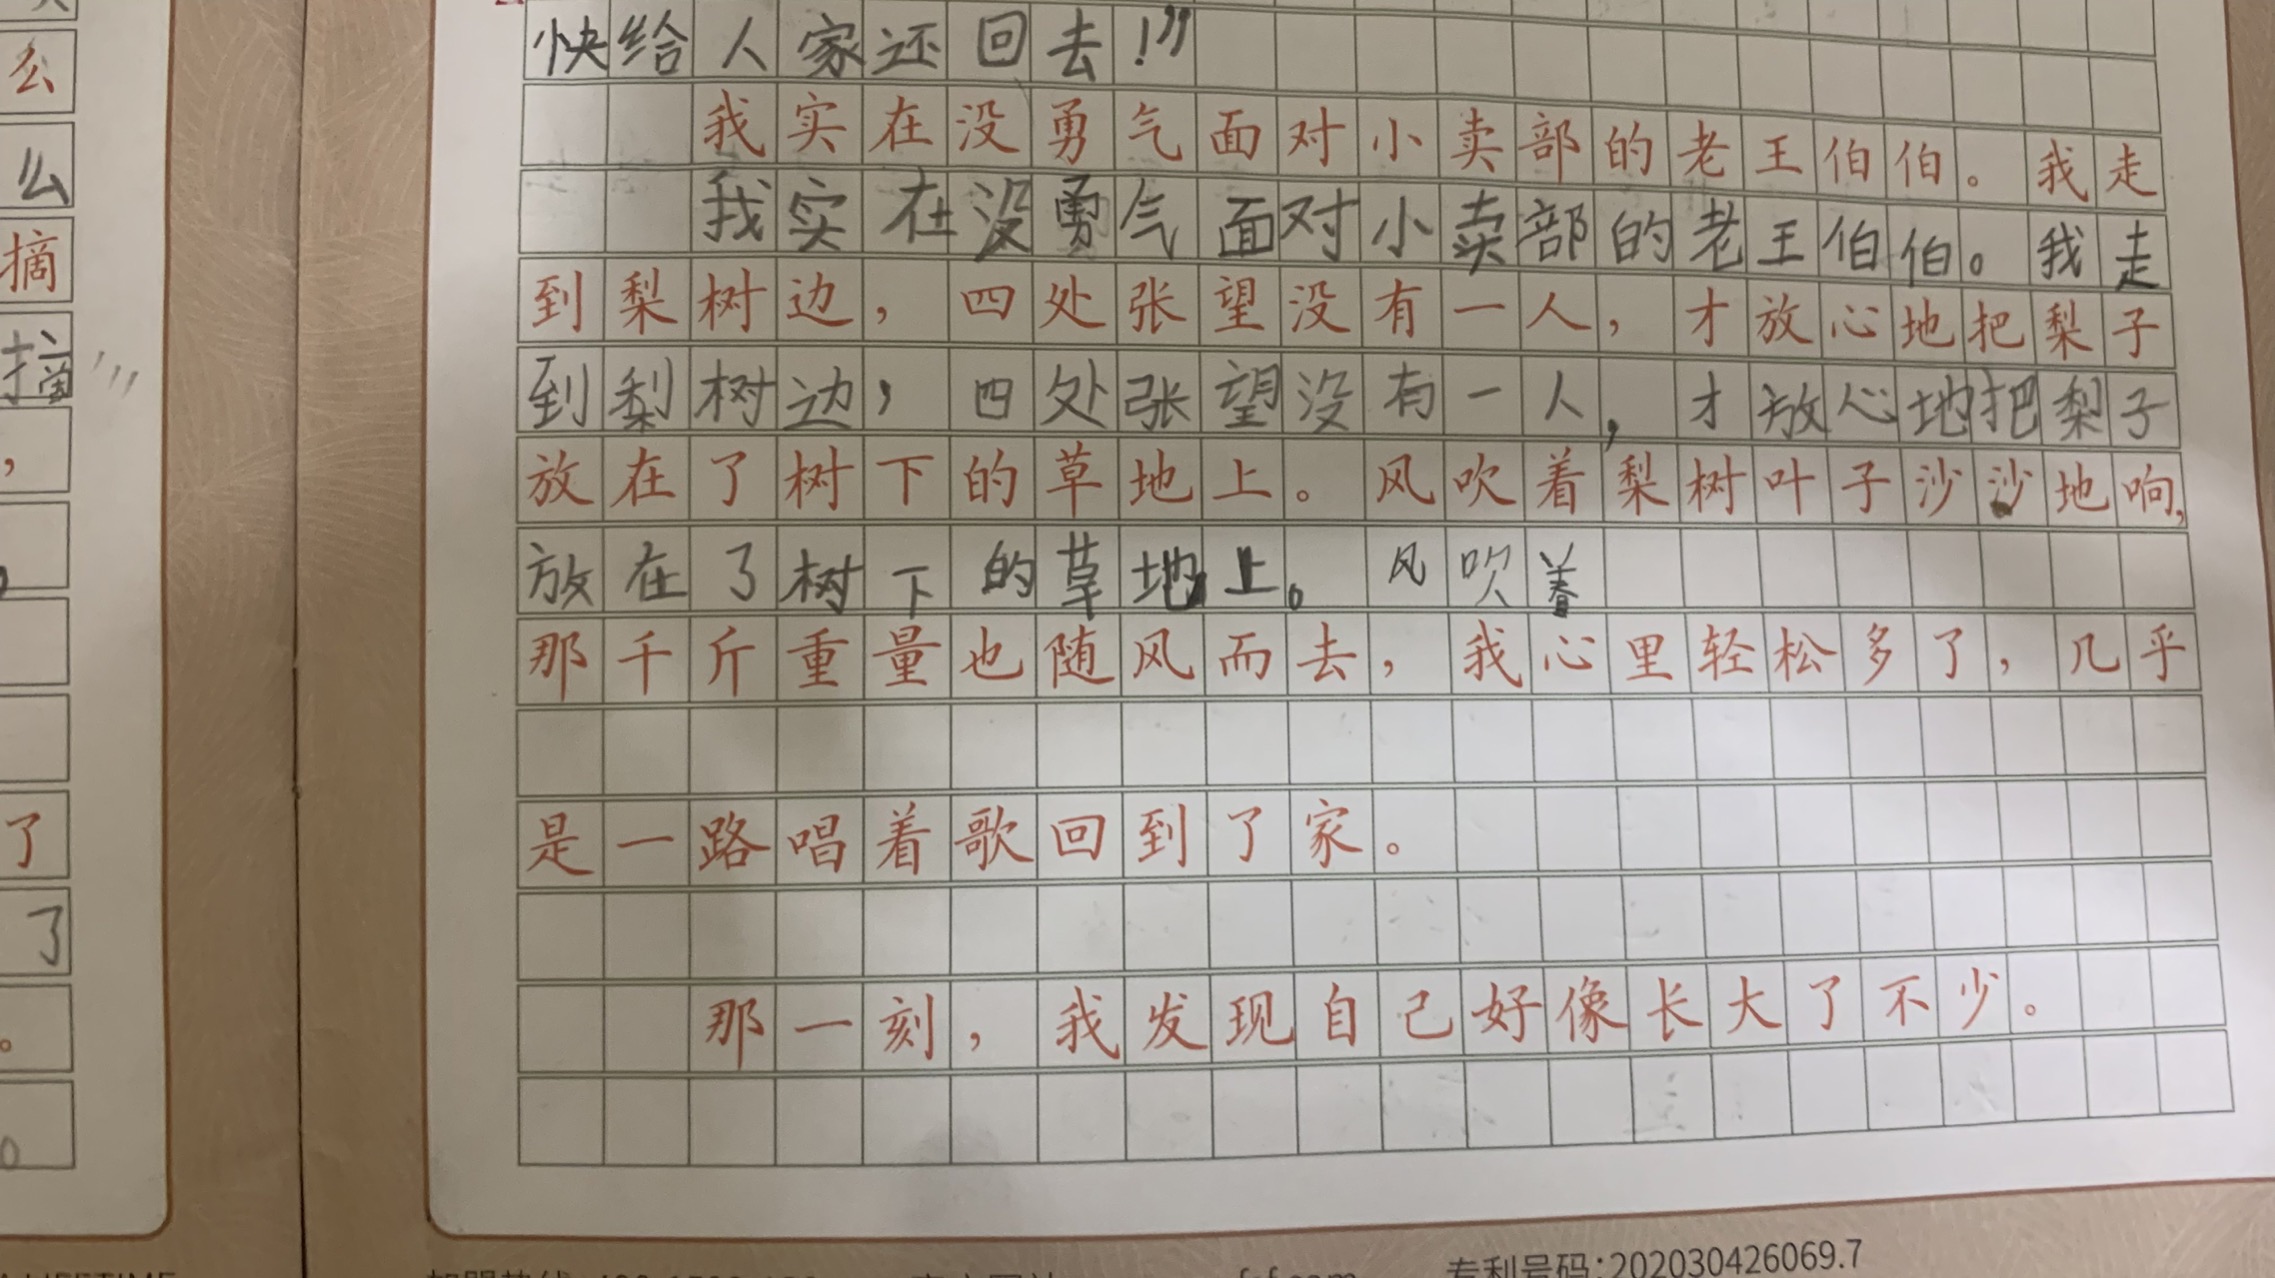 么
么
摘
摘
，
了
了
。
。
快给人家还回去！”
我实在没勇气面对小卖部的老王伯伯。我走
我实在没勇气面对小卖部的老王伯伯。我走
到梨树边，四处张望没有一人，才放心地把梨子
到梨树边，四处张望没有一人，才放心地把梨子
放在了树下的草地上。风吹着梨树叶子沙沙地响，
放在了树下的草地上。风吹着
那千斤重量也随风而去，我心里轻松多了，几乎
是一路唱着歌回到了家。
那一刻，我发现自己好像长大了不少。
专利号码:202030426069.7